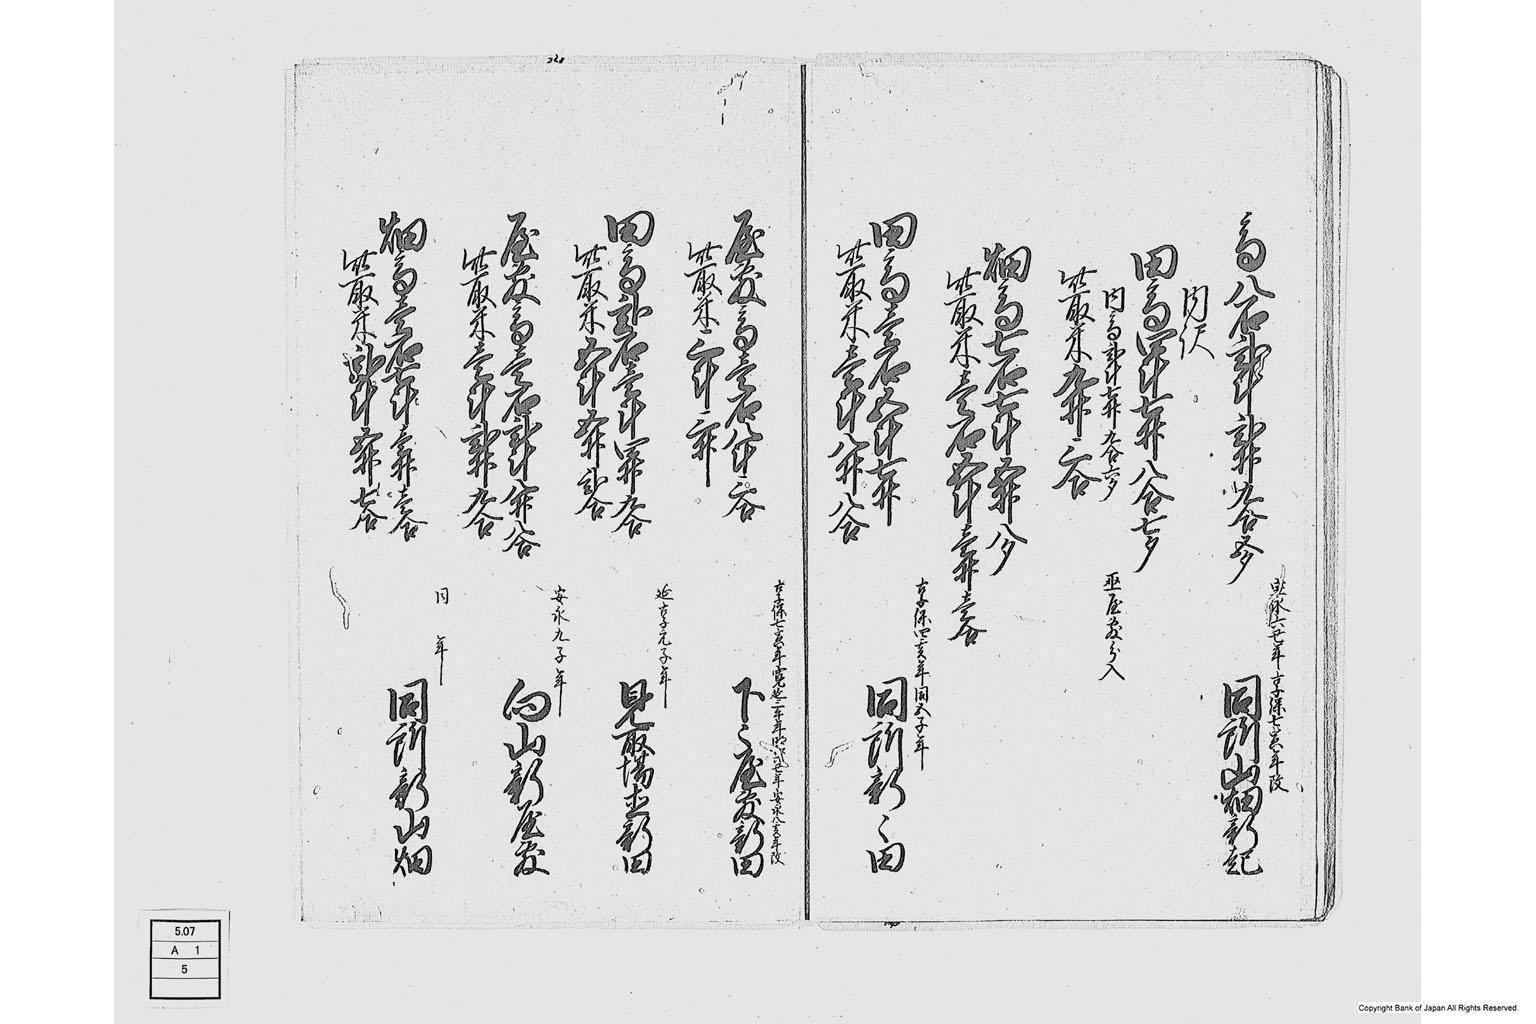 高八石弐斗弐升九合五夕
宝永六丑年享保七寅年改
同所山畑新起
内訳
田高四斗七升八合七夕
内高弐斗七升九合六夕
屋敷分入
此取米九升二合
畑高七石七斗五升八夕
此取米壱石五斗壱升壱合
田高壱石五斗七升
享保四亥年同五子年
同所新々田
此取米壱斗八升八合
屋敷高壱石八斗二合
享保七寅年寛延二年安永八亥年改
下々屋敷新田
此取米二斗二升
田高弐石壱斗四升九合
延享元子年
見取場新田
此取米五斗五升弐合
屋敷高壱石弐斗八升八合
安永九子年
向山新屋敷
此取米壱斗弐升九合
畑高壱石七斗壱升壱合
同年
同所新山畑
此取米弐斗五升七合
5.07
A 1
5
Copyright Bank of Japan All Rights Reserved.